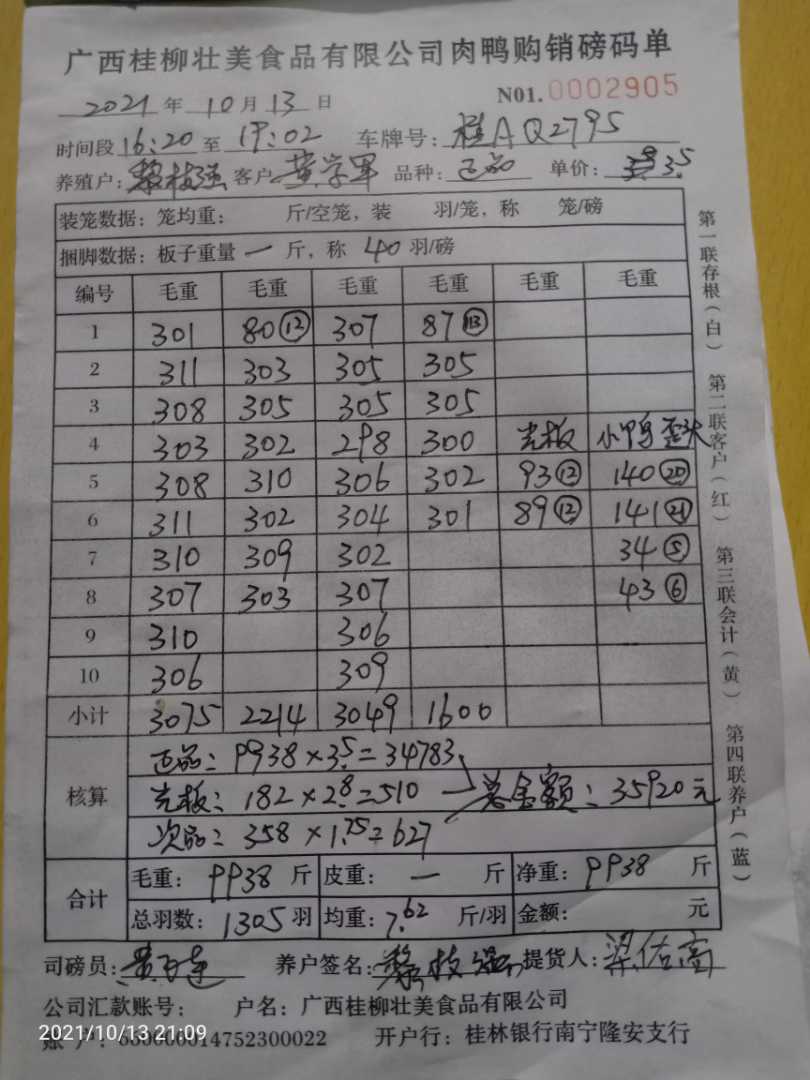 广西桂柳壮美食品有限公司肉鸭购销磅码单
2021年10月13日 N01.0002905
时间段16:20至19:02 车牌号:桂AQ2795
养殖户:黎枝强 客户:黄学军 品种:正品 单价:3.5
装笼数据:笼均重: 斤/空笼,装 羽/笼,称 笼/磅
捆脚数据:板子重量一斤,称40羽/磅
编号 毛重 毛重 毛重 毛重 毛重 毛重
1 301 80⑫ 307 87⑬
2 311 303 305 305
3 308 305 305 305
4 303 302 298 300 光板 小鸭歪头
5 308 310 306 302 93⑫ 140⑳
6 311 302 304 301 89⑫ 141㉑
7 310 309 302 34⑤
8 307 303 307 43⑥
9 310 306
10 306 309
小计 3075 2214 3049 1600
核算
正品:9938×3.5=34783
光板:182×2.8=510 总金额:35920元
次品:358×1.75=627
合计
毛重:9938斤 皮重:一斤 净重:9938斤
总羽数:1305羽 均重:7.62斤/羽 金额: 元
司磅员: 养户签名:黎枝强 提货人:梁佑高
公司汇款账号: 户名:广西桂柳壮美食品有限公司
2021/10/13 21:09
账户:660000014752300022 开户行:桂林银行南宁隆安支行
第一联存根(白)
第二联客户(红)
第三联会计(黄)
第四联养户(蓝)